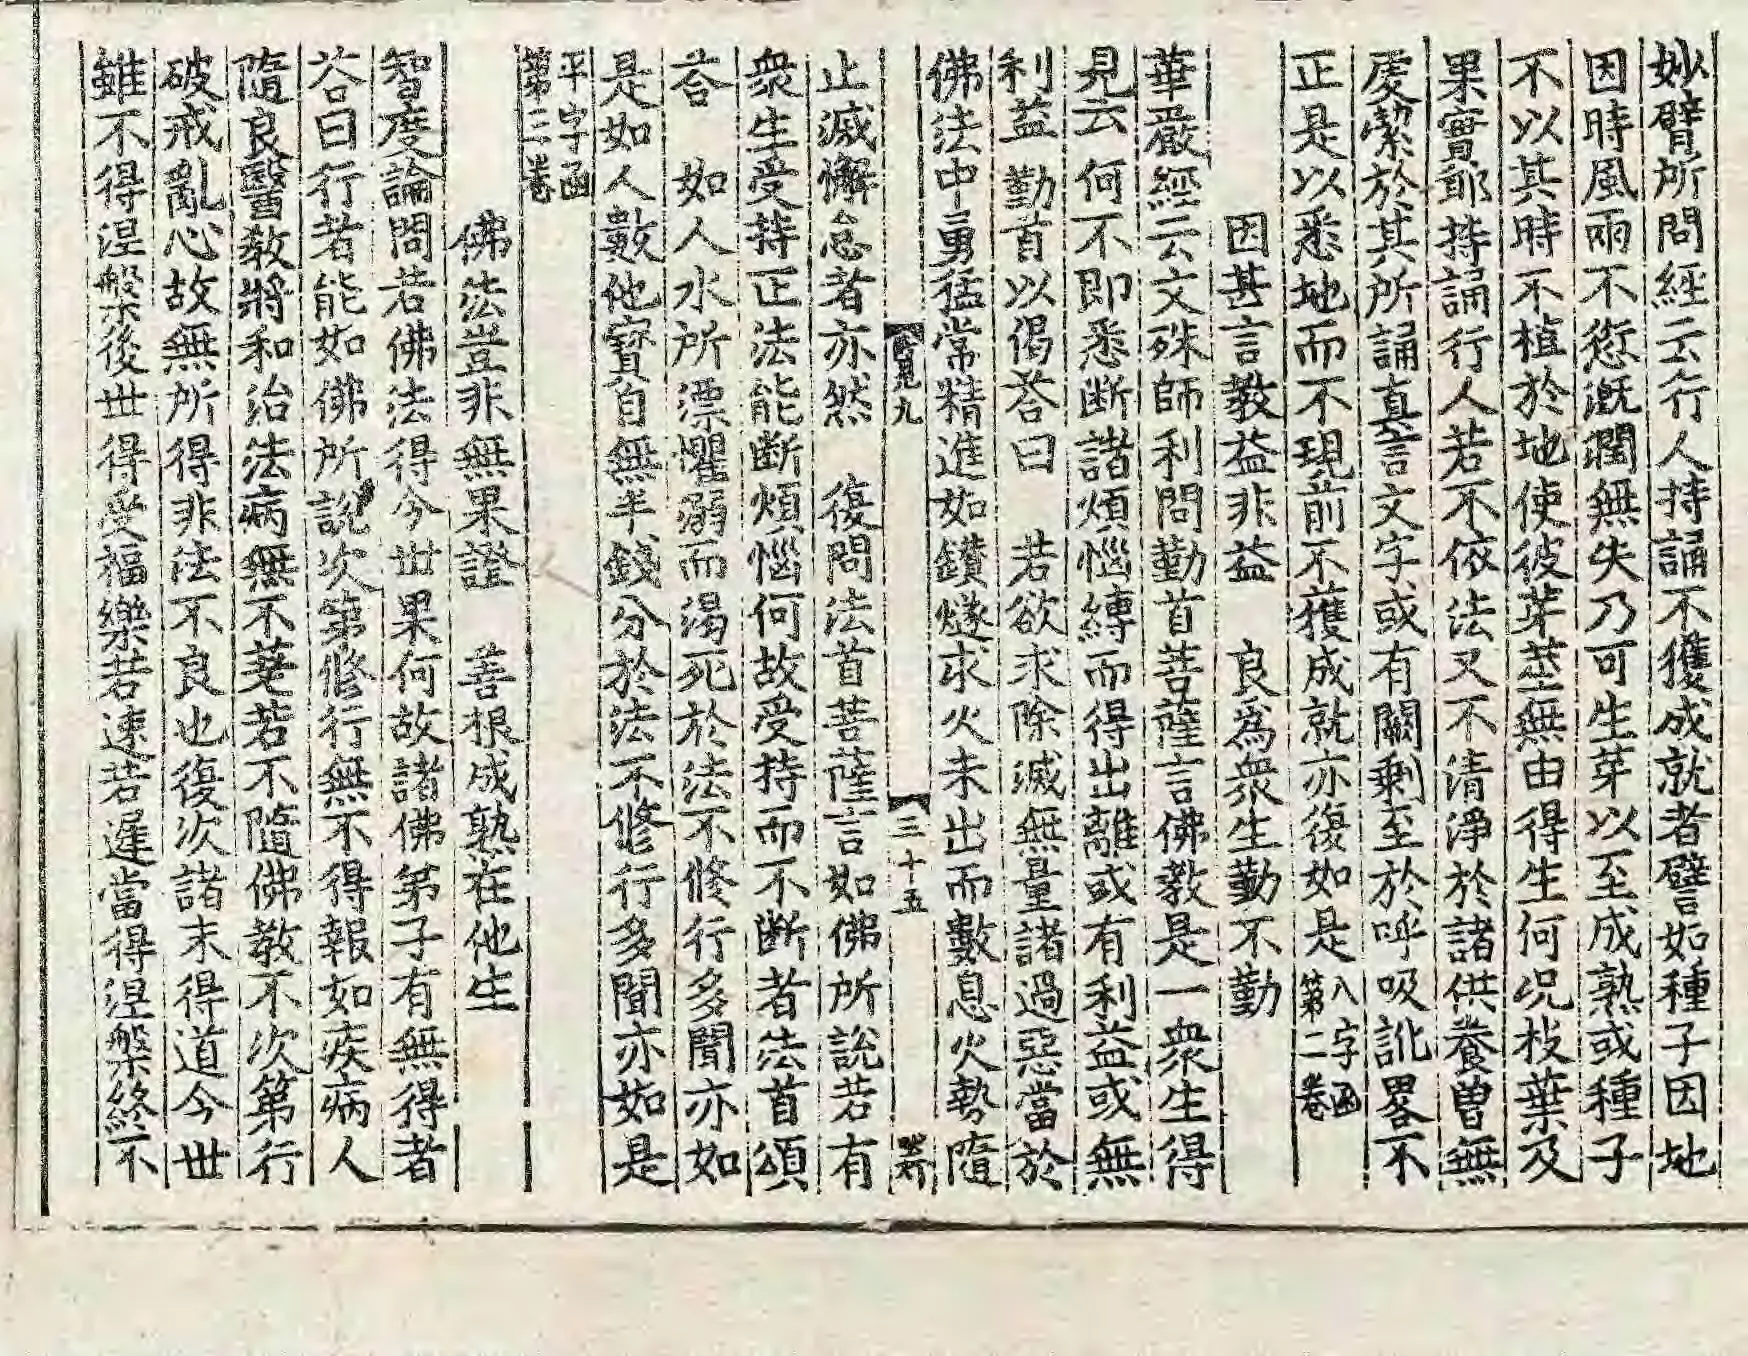 妙臂所問經云行人持誦不獲成就者譬如種子因地
因時風雨不愆漑潤無失乃可生芽以至成熟或種子
不以其時不植於地使彼芽莖無由得生何況枝葉及
果實耶持誦行人若不依法又不清淨於諸供養曾無
虔潔於其所誦真言文字或有闕剩至於呼吸訛畧不
正是以悉地而不現前不獲成就亦復如是 八字函第二卷
因甚言教益非益 良爲衆生勤不勤
華嚴經云文殊師利問勤首菩薩言佛教是一衆生得
見云何不即悉斷諸煩惱縛而得出離或有利益或無
利益 勤首以偈荅曰 若欲求除滅無量諸過惡當於
佛法中勇猛常精進如鑽燧求火未出而數息火勢隨
見九 三十五
止滅懈怠者亦然 復問法首菩薩言如佛所說若有
衆生受持正法能斷煩惱何故受持而不斷者法首頌
荅 如人水所漂懼溺而渴死於法不修行多聞亦如
是如人數他寶自無半錢分於法不修行多聞亦如是
平字函第三卷
佛法豈非無果證 善根成熟在他生
智度論問若佛法得今世果何故諸佛弟子有無得者
荅曰行者能如佛所說次第修行無不得報如疾病人
隨良醫教將和治法病無不差若不隨佛教不次第行
破戒亂心故無所得非法不良也復次諸未得道今世
雖不得涅槃後世得受福樂若速若遲當得涅槃終不